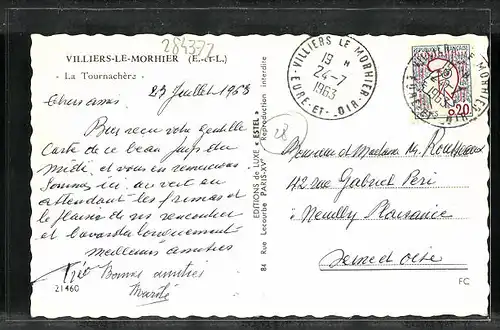 284377
VILLIERS-LE-MORHIER (E.-et-L.)
- La Tournachère -
Chers amis 23 Juillet 1963
Bien reçu votre gentille
Carte de ce beau pays du
Midi et vous en remercions
Sommes ici au vert en
attendant les frimas et
le plaisir de se rencontrer
et bavarder longuement
Meilleures amitiés
Bonnes amitiés
21460
EDITIONS de LUXE « ESTEL »
84 Rue Lecourbe PARIS-XV
Reproduction interdite
VILLIERS LE MORHIER
19 H
24-7
1963
EURE-ET-LOIR
0,20
Monsieur et Madame
42 rue Gabriel Péri
à Neuilly Plaisance
Seine et Oise
FC